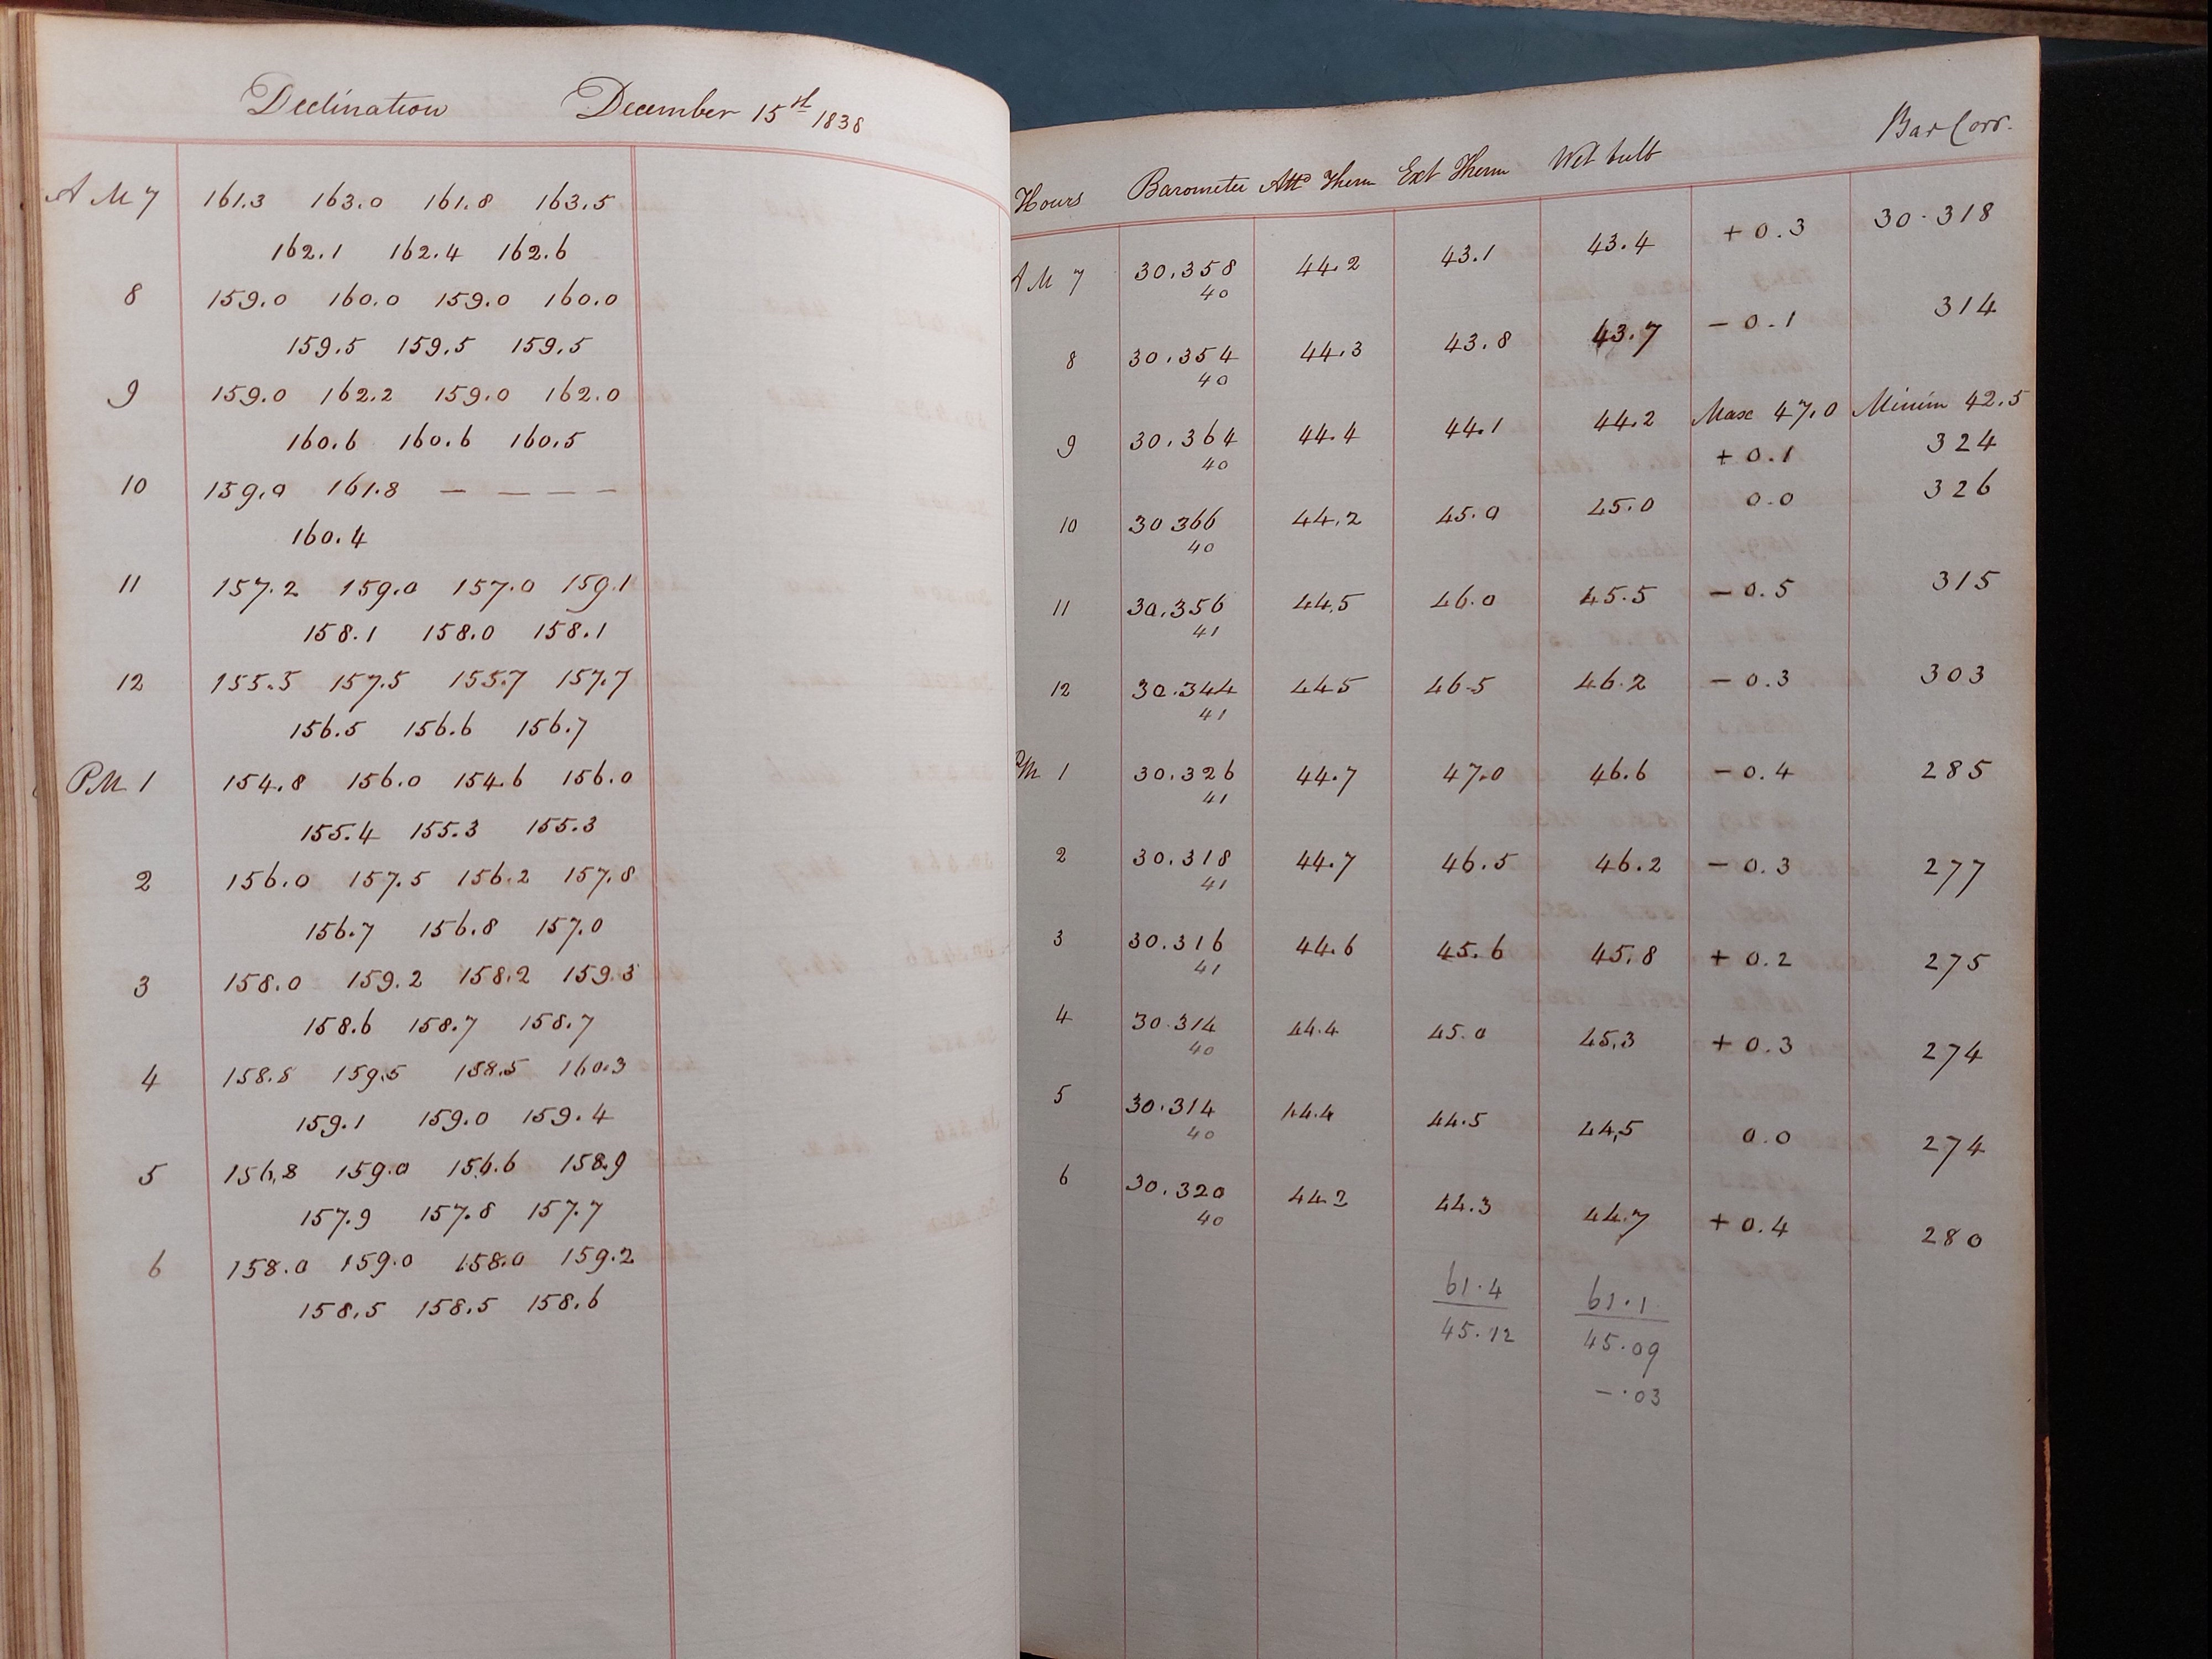 Declination December 15th 1838
A M 7 161.3 163.0 161.8 163.5
162.1 162.4 162.6
8 159.0 160.0 159.0 160.0
159.5 159.5 159.5
9 159.0 162.2 159.0 162.0
160.6 160.6 160.5
10 159.0 161.8 — — — — —
160.4
11 157.2 159.0 157.0 159.1
158.1 158.0 158.1
12 155.5 157.5 155.7 157.7
156.5 156.6 156.7
PM 1 154.8 156.0 154.6 156.0
155.4 155.3 155.3
2 156.0 157.5 156.2 157.8
156.7 156.8 157.0
3 158.0 159.2 158.2 159.3
158.6 158.7 158.7
4 158.8 159.5 158.5 160.3
159.1 159.0 159.4
5 156.8 159.0 156.6 158.9
157.9 157.8 157.7
6 158.0 159.0 158.0 159.2
158.5 158.5 158.6
Hours Barometer Attd Therm Ext Therm Wet bulb Bar Corr.
A M 7 30.358 44.2 43.1 43.4 + 0.3 30.318
40
8 30.354 44.3 43.8 43.7 - 0.1 314
40
Max 47.0 Minim 42.5
9 30.364 44.4 44.1 44.2 + 0.1 324
40
10 30 366 44.2 45.0 45.0 0.0 326
40
11 30.356 44.5 46.0 45.5 - 0.5 315
41
12 30.344 44.5 46.5 46.2 - 0.3 303
41
PM 1 30.326 44.7 47.0 46.6 - 0.4 285
41
2 30.318 44.7 46.5 46.2 - 0.3 277
41
3 30.316 44.6 45.6 45.8 + 0.2 275
41
4 30.314 44.4 45.0 45.3 + 0.3 274
40
5 30.314 44.4 44.5 44.5 0.0 274
40
6 30.320 44.2 44.3 44.7 + 0.4 280
40
61.4 61.1
45.12 45.09
-.03